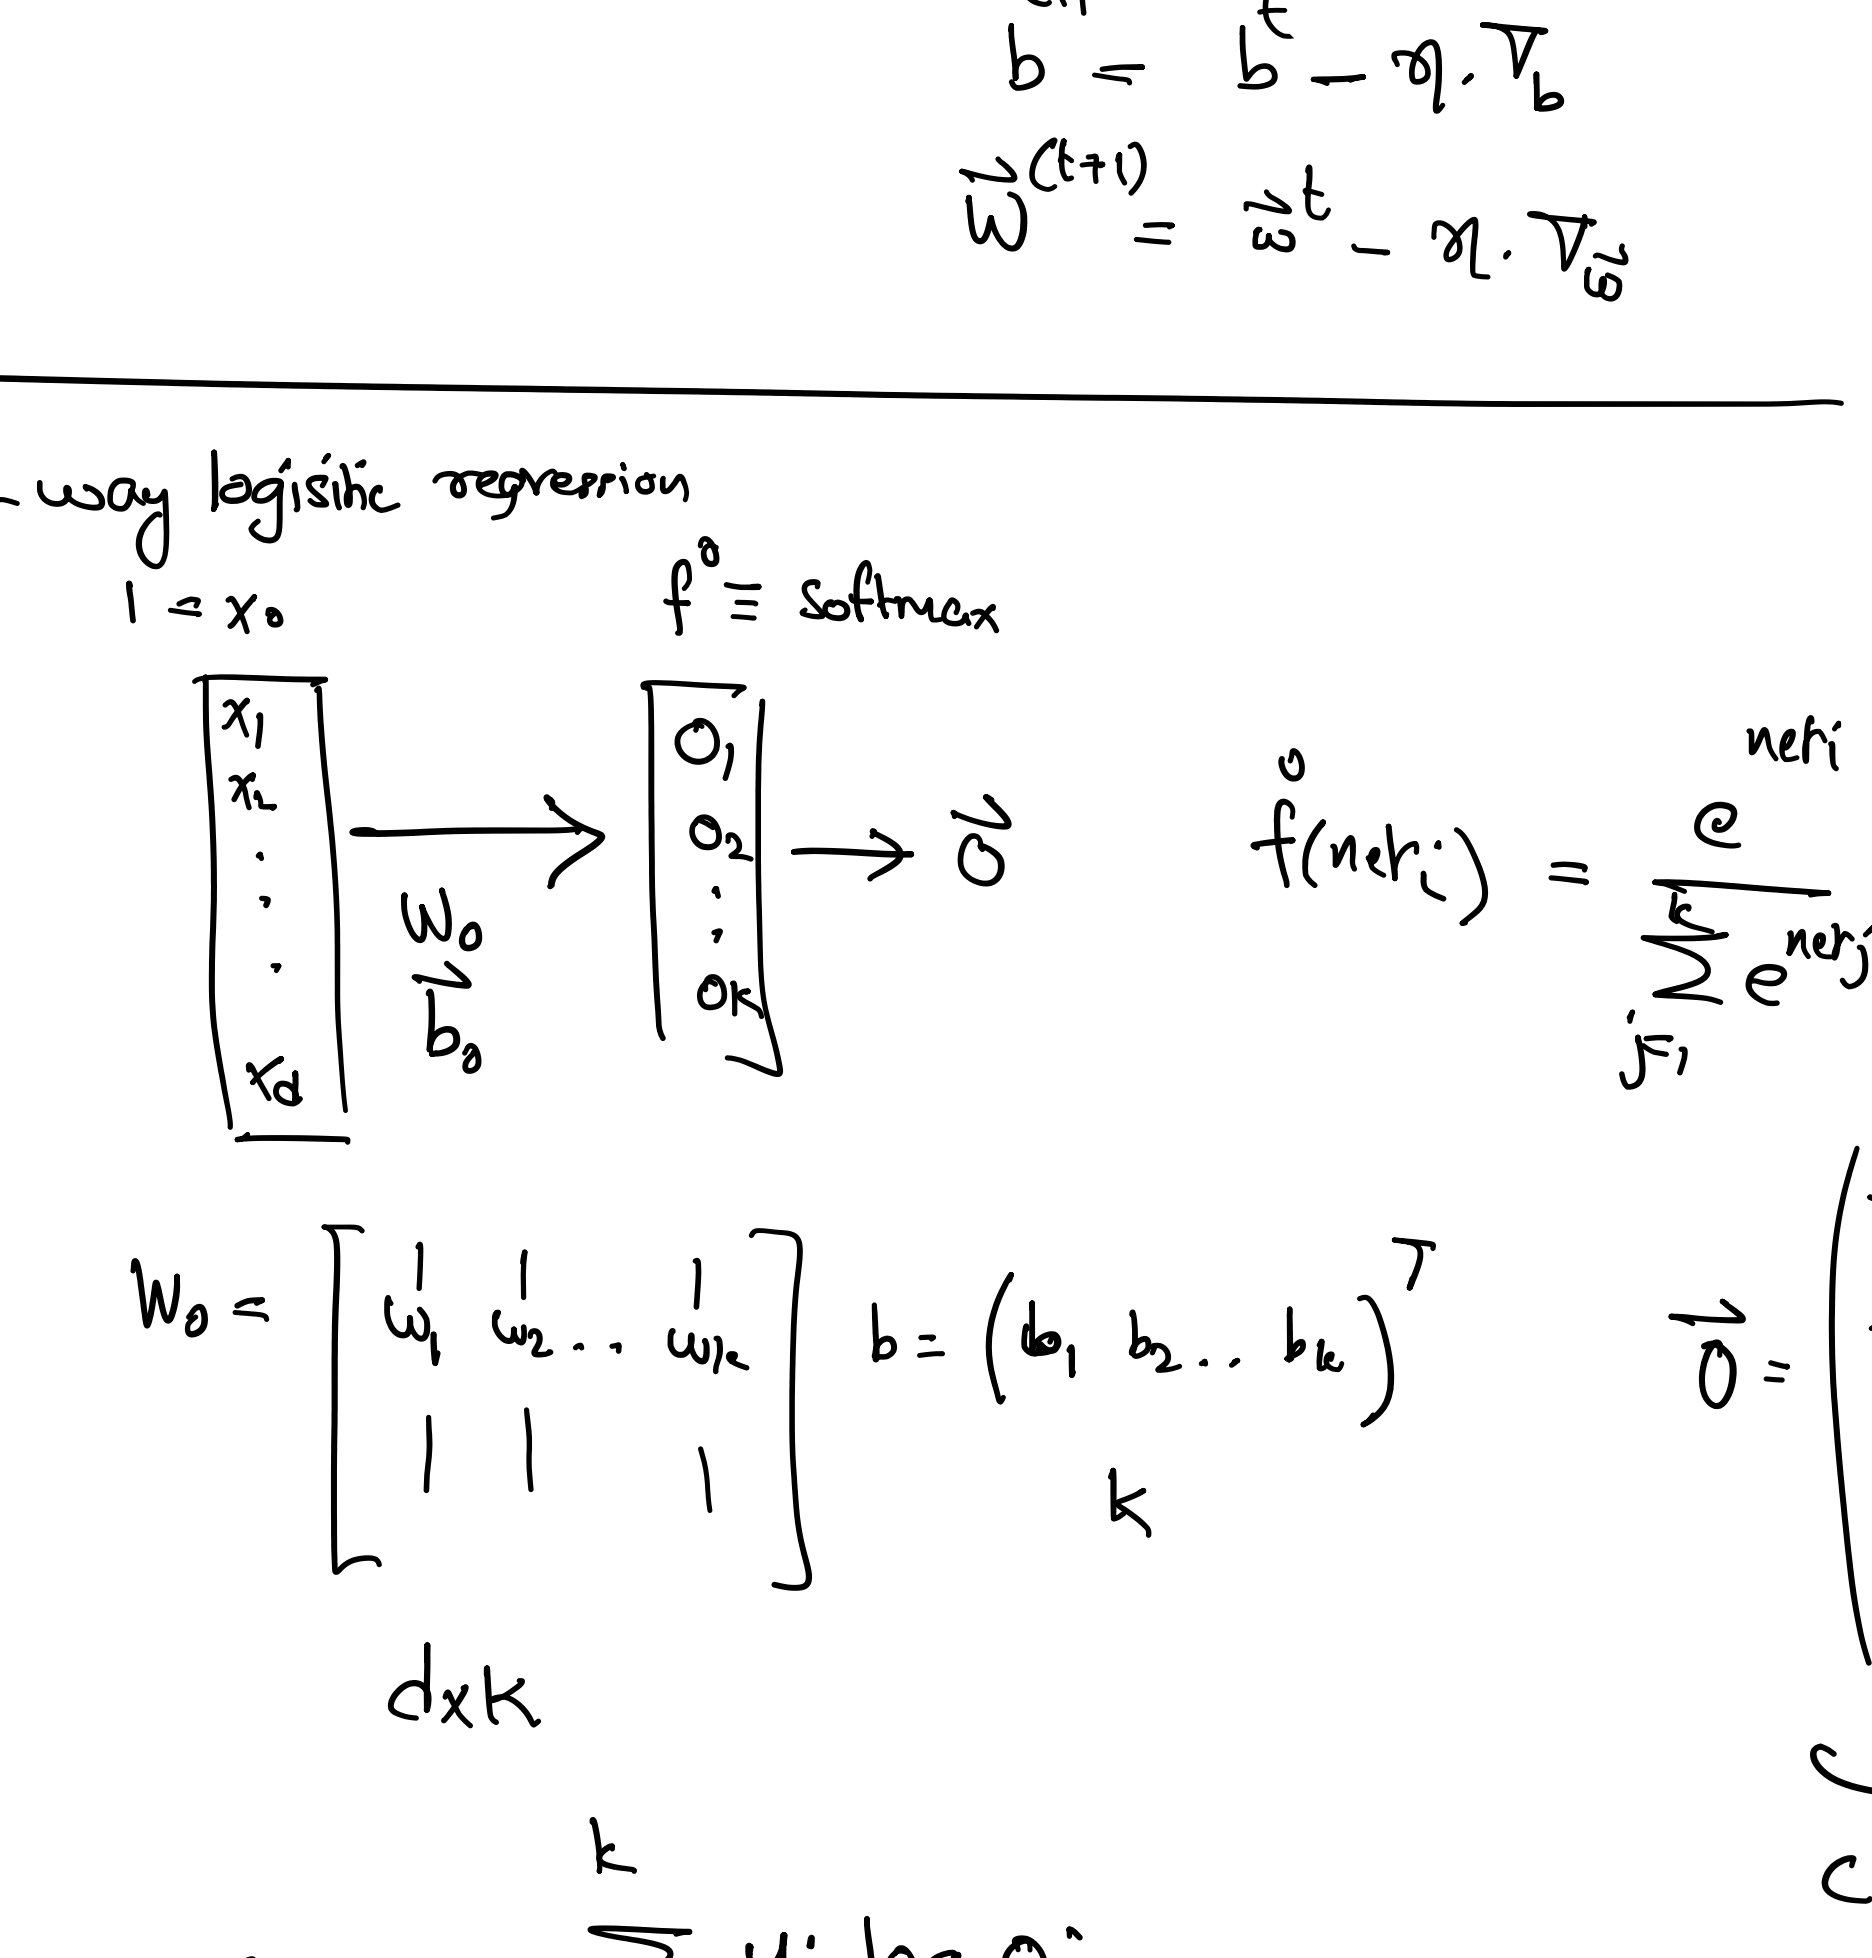 b = b^t - η · ∇_b
w⃗^(t+1) = w⃗^t - η · ∇_w⃗
- way logistic regression
1 = x₀
f^o ≡ softmax
x₁
x₂
.
.
.
x_d
W_o
b⃗_o
o₁
o₂
.
.
o_K
→ o⃗
f^o(net_i) = e^{net_i} / Σ_{j=1}^{k} e^{net_j}
W_o = [ w₁ w₂ ... w_k ] b = (b₁ b₂ .. b_k)^T
o⃗ =
k
d×k
k
Σ